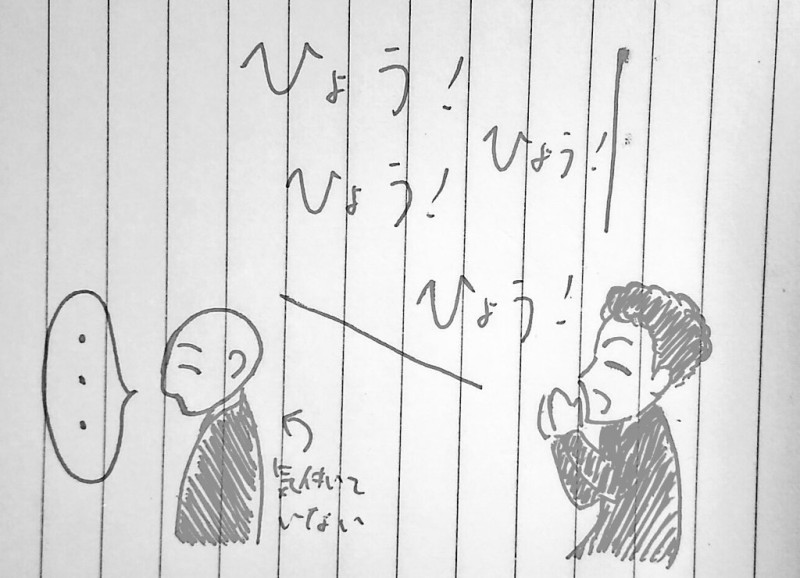 ひょう!
ひょう!
ひょう!
ひょう!
・・・
気付いて
いない